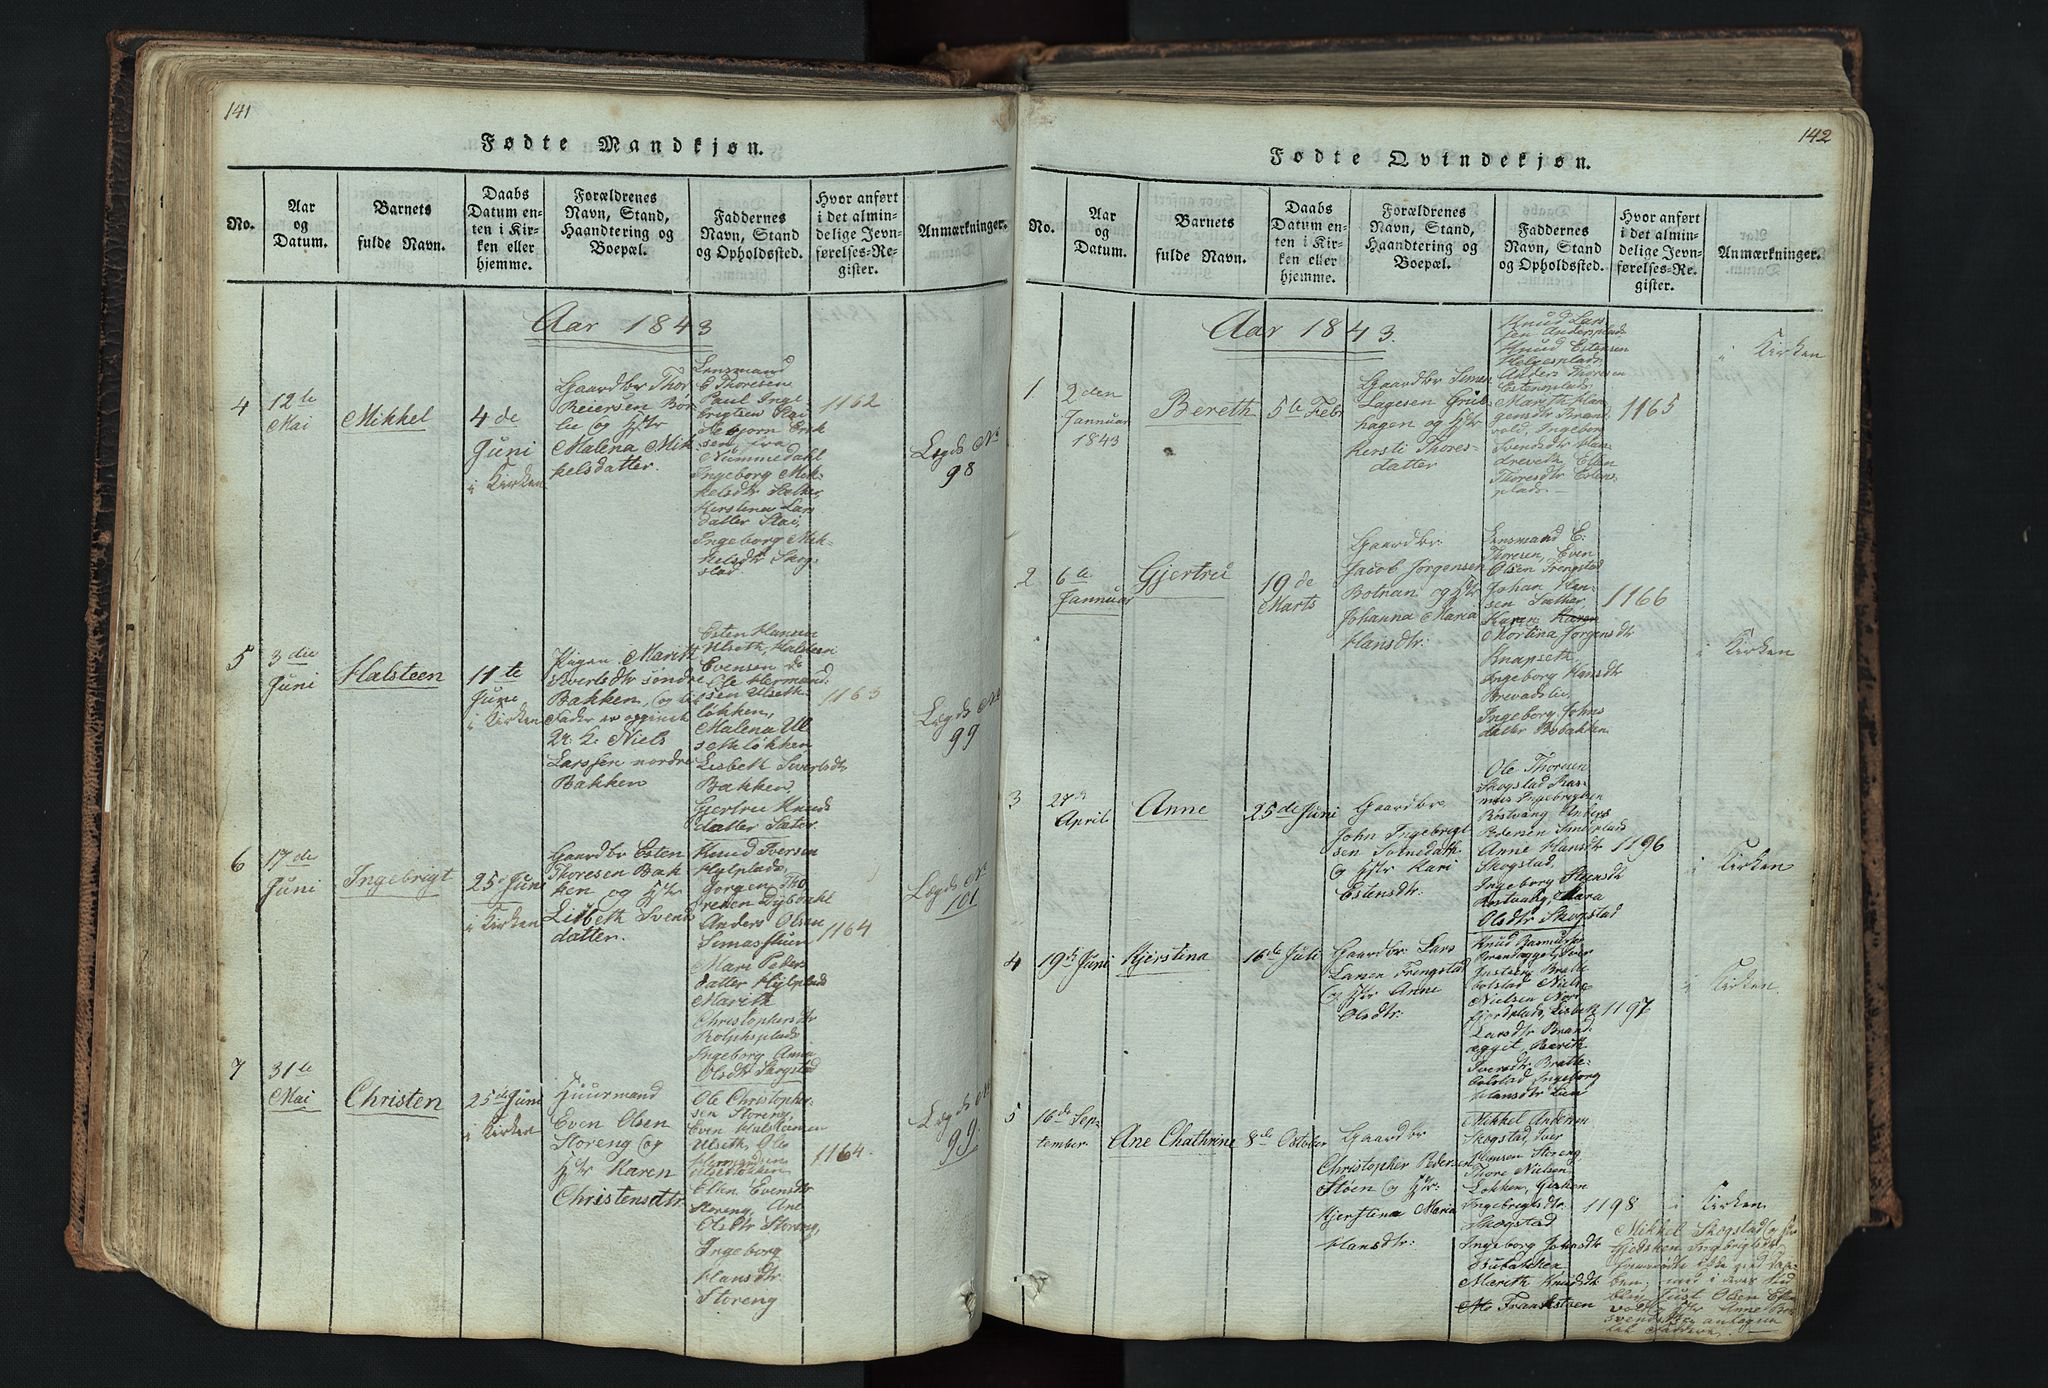 141
Fødte Mandkjøn.
No.
Aar
og
Datum.
Barnets
fulde Navn.
Daabs
Datum en-
ten i Kir-
ken eller
hjemme.
Forældrenes
Navn, Stand,
Haandtering og
Boepæl.
Faddernes
Navn, Stand
og Opholdssted.
Hvor anført
i det almin-
delige Jevn-
førelses-Re-
gister.
Anmærkninger.
Aar 1843
4
12te
Mai
Mikkel
4de
Juni
i Kirken
Gaardbr Thor
Reiersen Bør
lie og Hstr
Malena Mik
kelsdatter.
Lensmand
E Thoresen
Paul Inge
brigtsen Stai
Asbjørn Erik
sen fra
Nummedahl
Ingeborg Mik
kelsdtr Sæther,
Kirstena Lars
datter Stai,
Ingeborg Mik
kelsdtr Skog
stad.
1162
Lægds No
98
5
3die
Juni
Halsteen
11te
Juni
i Kirken
Pigen Marith
Siverlsdtr søndre
Bakken, og til
Fader er opgivet
Niels
Larssen nordre
Bakken
Esten Hansen
Ulseth, Halsteen
Evensen do
Ole Hermand
sen Ulseth
løkken,
Malena Ul
sethløkken
Lisbeth Siverlsdtr
Bakken,
Gjertru Knuds
datter Sæter.
1163
Lægds No
99
6
17de
Juni
Ingebrigt
25de Juni
i Kirken
Gaardbr Esten
Thoresen Bak
ken og Hstr
Lisbeth Svend
datter.
Knud Iversen
Hylplads,
Jørgen Tho
resen
Anders Olsen
Mari Peder
datter Hylplads
Marith
Christophersdtr
Rolphsplads
Ingeborg Anna
Olsdtr Skogstad
1164
Lægds No
101
7
31te
Mai
Christen
25de Juni
i Kirken
Huusmand
Even Olsen
Storeng og
Hstr Karen
Christensdtr.
Ole Christopher
sen Storeng,
Even Halsteinsen
Ulseth, Ole
Hermandsen
Ulsethløkken
Elen Evensdtr
Storeng, Ane
Olsdtr Storeng,
Ingeborg
Hansdtr
Storeng
1164.
Lægds No
99.
142
Fødte Qvindekjøn.
No.
Aar
og
Datum.
Barnets
fulde Navn.
Daabs
Datum en-
ten i Kir-
ken eller
hjemme.
Forældrenes
Navn, Stand,
Haandtering og
Boepæl.
Faddernes
Navn, Stand
og Opholdssted.
Hvor anført
i det almin-
delige Jevn-
førelses-Re-
gister.
Anmærkninger.
Aar 1843.
1
2den
Januar
1843
Bereth
5te Febr
Gaardbr Simen
Lagesen Grut-
hagen og Hstr
Kersti Thores-
datter
Knud Lar-
sen Andersplads
Knud Estensen
Helgesplads
Anders Thoresen
Estensplads
Marith
vold, Ingeborg
Svendsdtr
Ellen
Thoresdtr Estens
plads
1165
i Kirken
2
6te
Januar
Gjertru
19de
Marts
Gaardbr.
Jacob Jørgensen
Botnan og Hstr
Johanna Maria
Hansdtr.
Lensmand E:
Thoresen, Even
Olsen Trengstad
Johan Han
sen Sæther,
Karen Karen
Mortina Jørgensdtr
Knapseth
Ingeborg Hansdtr
Brevadslie,
Ingeborg Johns
datter Bubakken
1166
i Kirken
3
27de
April
Anne
25de Juni
Gaardbr
John Ingebrigt
sen
og Hstr Kari
Estensdtr.
Ole Thoresen
Skogstad Ras-
mus Ingebrigtsen
Røstvang Anders
Pedersen
Anne Hansdtr
Skogstad,
Ingeborg Steensdtr
Røstvang, Mara
Olsdtr Skogstad
1196
i Kirken
4
19de Juni
Kjerstina
16de Juli
Gaardbr. Lars
Larsen Trengstad
og Hstr Anne
Olsdtr.
Knud
Brandægget, Iver
Justsen Bratte
bolstad Niels
Nielsen Nor
fjordplads, Lisbeth
Larsdtr Brand
ægget, Berith
Iversdtr Bratte-
bolstad, Ingeborg
Hansdtr Lien
1197
i Kirken.
5
16de Sep
tember
Ane Chathrine
8de October
Gaardbr
Christopher Pedersen
Støen og Hstr
Kjerstena Maria
Hansdtr:
Mikkel Andersen
Skogstad, Iver
Hansen Storeng
Thore Nielsen
Løkken,
Ingebrigtsdtr
Skogstad
Ingeborg Johnsdtr
Bubakken
Marith Knudsdtr
1198
i Kirken
Mikkel Skogstad og Hstr
Ingebrigtsdtr
fremmødte ikke ved Daa-
ben; men i deres Sted
blev Just Olsen